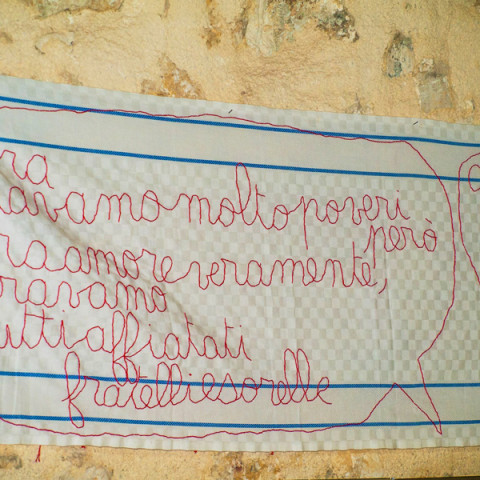 ra
ravamo molto poveri
però
ra amore veramente,
ravamo
utti affiatati
fratelli e sorelle